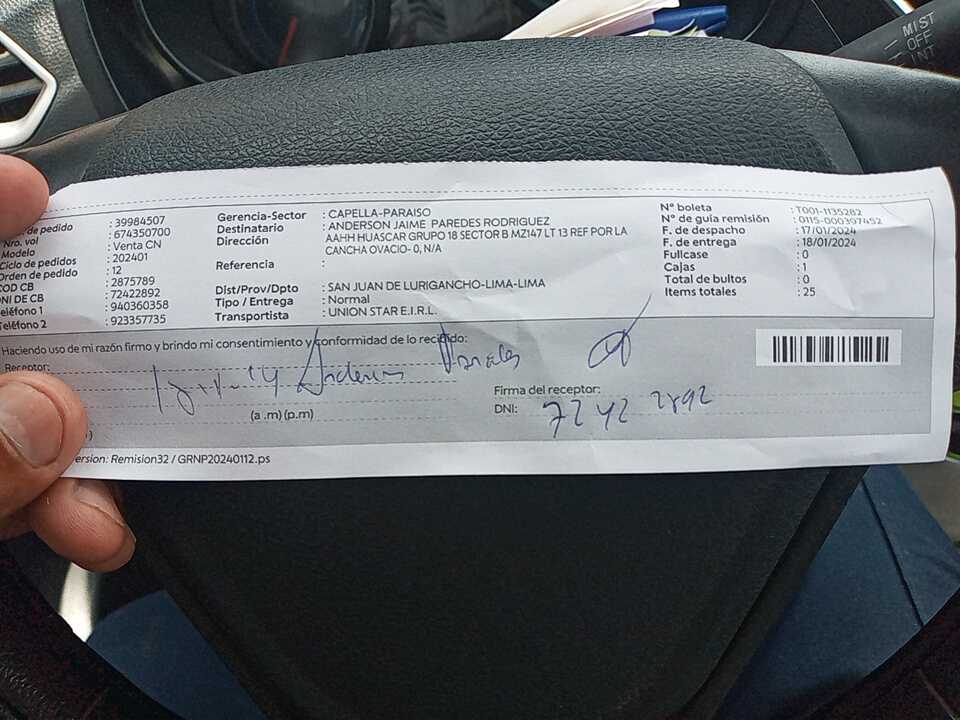 MIST
OFF
INT
de pedido : 39984507
Nro. vol : 674350700
Modelo : Venta CN
Ciclo de pedidos : 202401
Orden de pedido : 12
COD CB : 2875789
DNI DE CB : 72422892
Teléfono 1 : 940360358
Teléfono 2 : 923357735
Gerencia-Sector : CAPELLA-PARAISO
Destinatario : ANDERSON JAIME PAREDES RODRIGUEZ
Dirección : AAHH HUASCAR GRUPO 18 SECTOR B MZ147 LT 13 REF POR LA
CANCHA OVACIO- 0, N/A
Referencia :
Dist/Prov/Dpto : SAN JUAN DE LURIGANCHO-LIMA-LIMA
Tipo / Entrega : Normal
Transportista : UNION STAR E.I.R.L.
Nº boleta : T001-1135282
Nº de guía remisión : 0115-000397452
F. de despacho : 17/01/2024
F. de entrega : 18/01/2024
Fullcase : 0
Cajas : 1
Total de bultos : 0
Items totales : 25
Haciendo uso de mi razón firmo y brindo mi consentimiento y conformidad de lo recibido:
Receptor:
Anderson
(a .m) (p.m)
Firma del receptor:
DNI: 72422892
ersion: Remision32 / GRNP20240112.ps